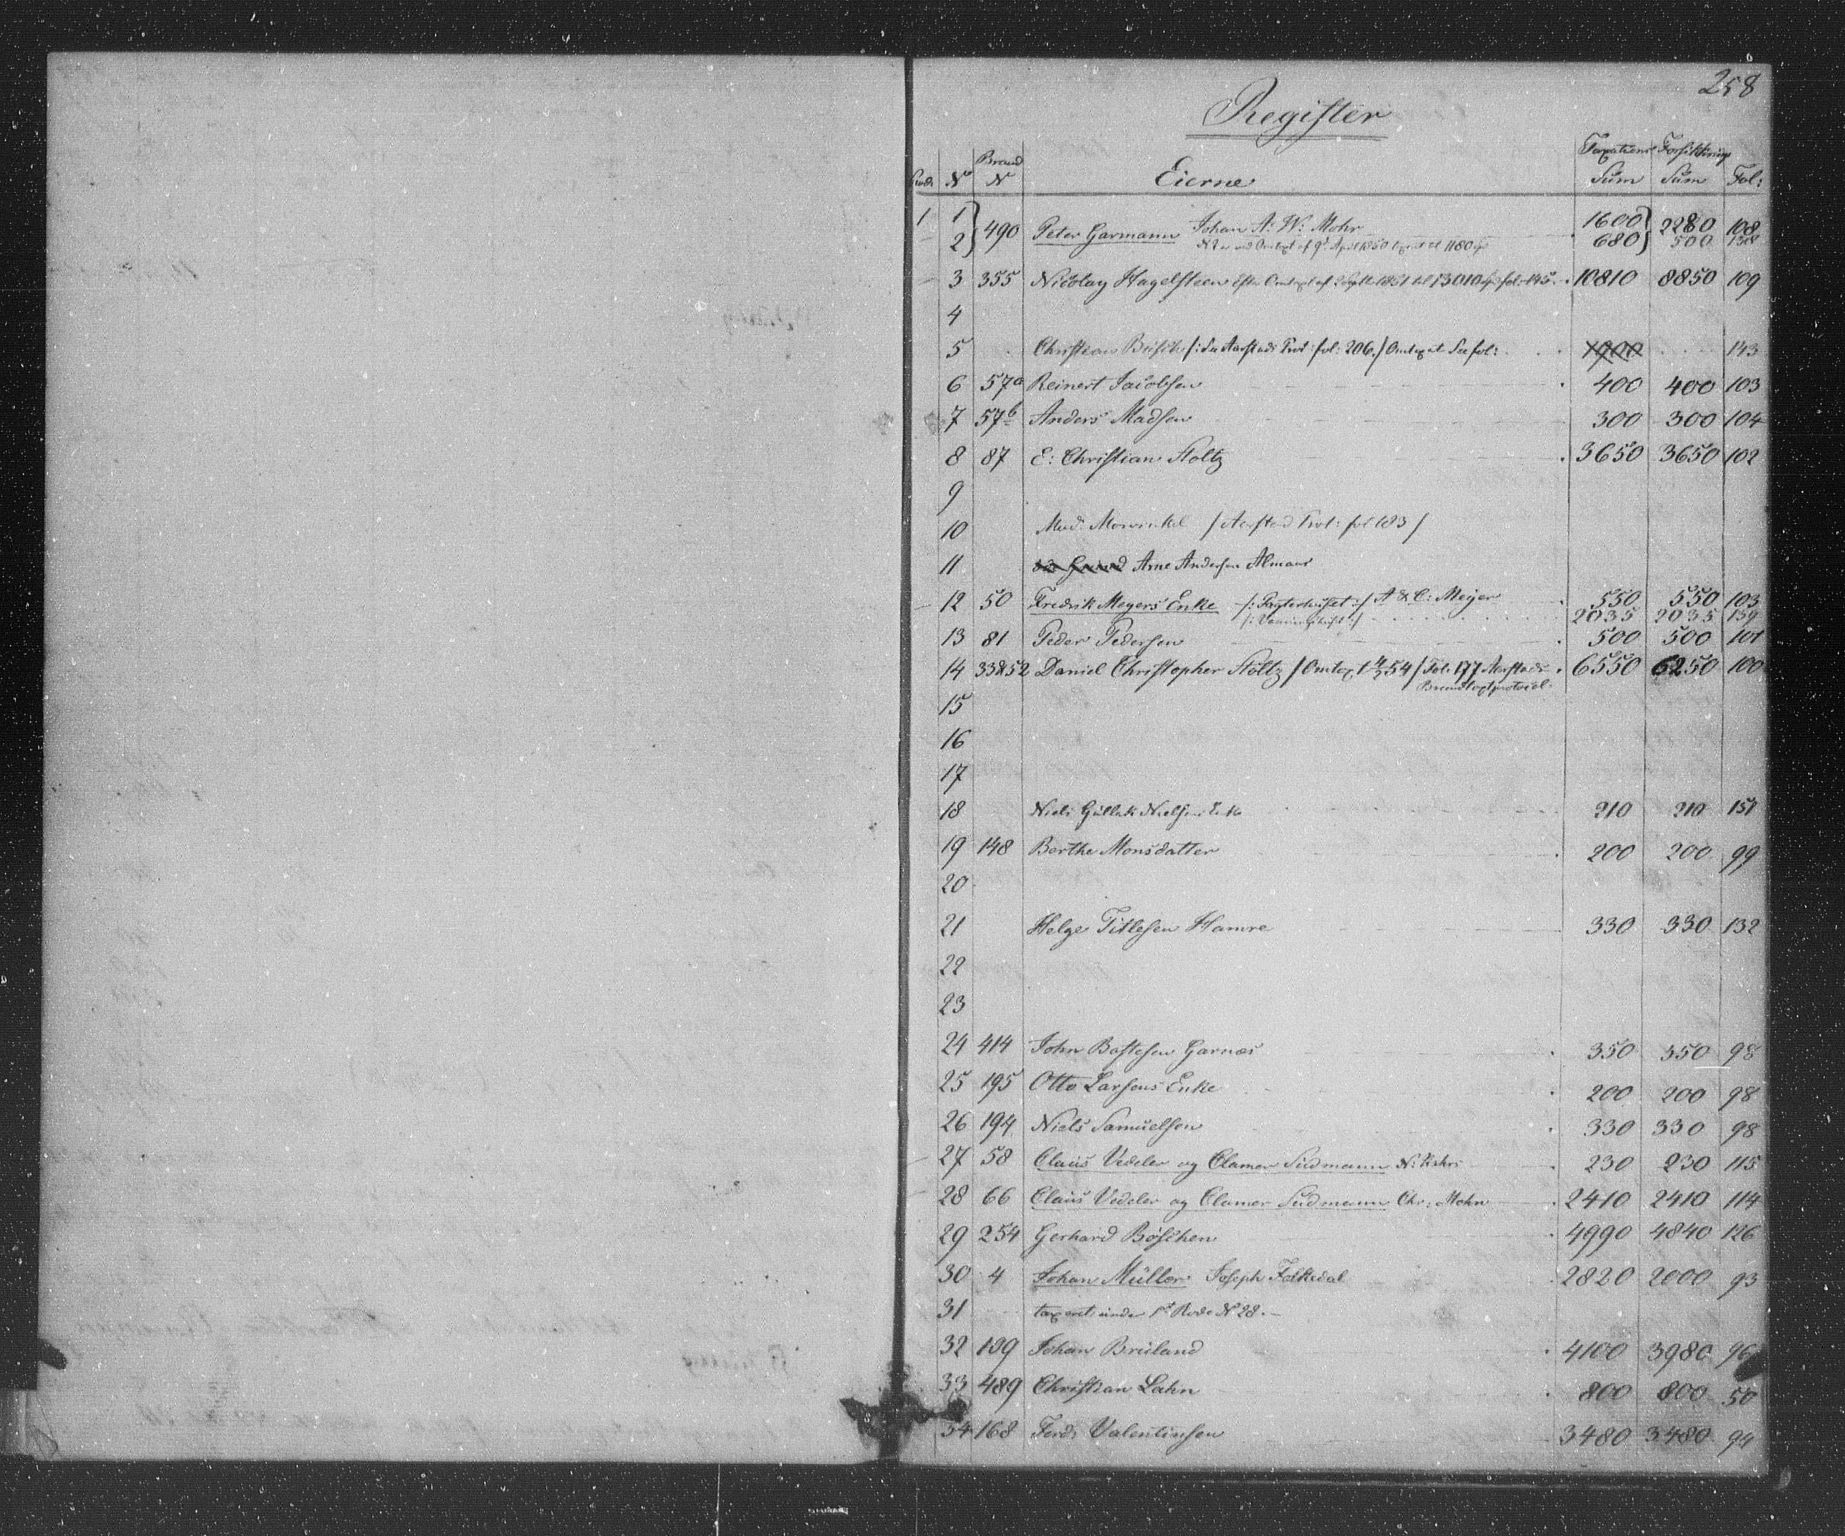 258
Register
Rode N° Brand N° Eierne Taxations Sum Forsikkrings Sum Fol:
1 1 } 490 Peter Garmann Johan A: W: Mohr 1600 } 2280 108
2 N 2 er ved Omtaxt af 9d April 1850 taxeret til 1180 680 500 138
3 355 Nicolay Hagelsteen Efter Omtaxt af 1851 til 13010 fol: 145 10810 8850 109
4
5 Christian Büsch /: See Aarstads Prot: fol: 206./ Omtaxat See fol: 1900 143
6 57a Reinert Jacobsen 400 400 103
7 57b Anders Madsen 300 300 104
8 87 E: Christian Stoltz 3650 3650 102
9
10 Mad. Mowinkel / Aarstad Prot: fol 183 /
11 Arne Andersen Almaas
12 50 Fredrik Meyers Enke /: :/ A & C: Meyer 550 550 103
/: :/ 2035 2035 139
13 81 Peder Pedersen 500 500 101
14 33&52 Daniel Christopher Stoltz / Omtaxt 4/5 54 / Fol: 177 Aarstads 6550 6250 100
Brandtaxtprotocol.
15
16
17
18 Niels Gullak Nielsens Enke 210 210 151
19 148 Berthe Monsdatter 200 200 99
20
21 Helge Titlesen Hamre 330 330 132
22
23
24 414 John Bastesen Garnæs 350 350 98
25 195 Otto Larsens Enke 200 200 98
26 194 Niels Samuelsen 330 330 98
27 58 Claus Vedeler og Clamer Sudmann N: 230 230 115
28 66 Claus Vedeler og Clamer Sudmann Chr: Mohn 2410 2410 114
29 254 Gerhard Böschen 4990 4840 126
30 4 Johan Müller Joseph Folkedal 2820 2000 93
31 taxeret under 1st Rode N° 28.
32 139 Johan Bruland 4100 3980 96
33 489 Christian Lahn 800 800 50
34 168 Ferd: Valentinsen 3480 3480 94